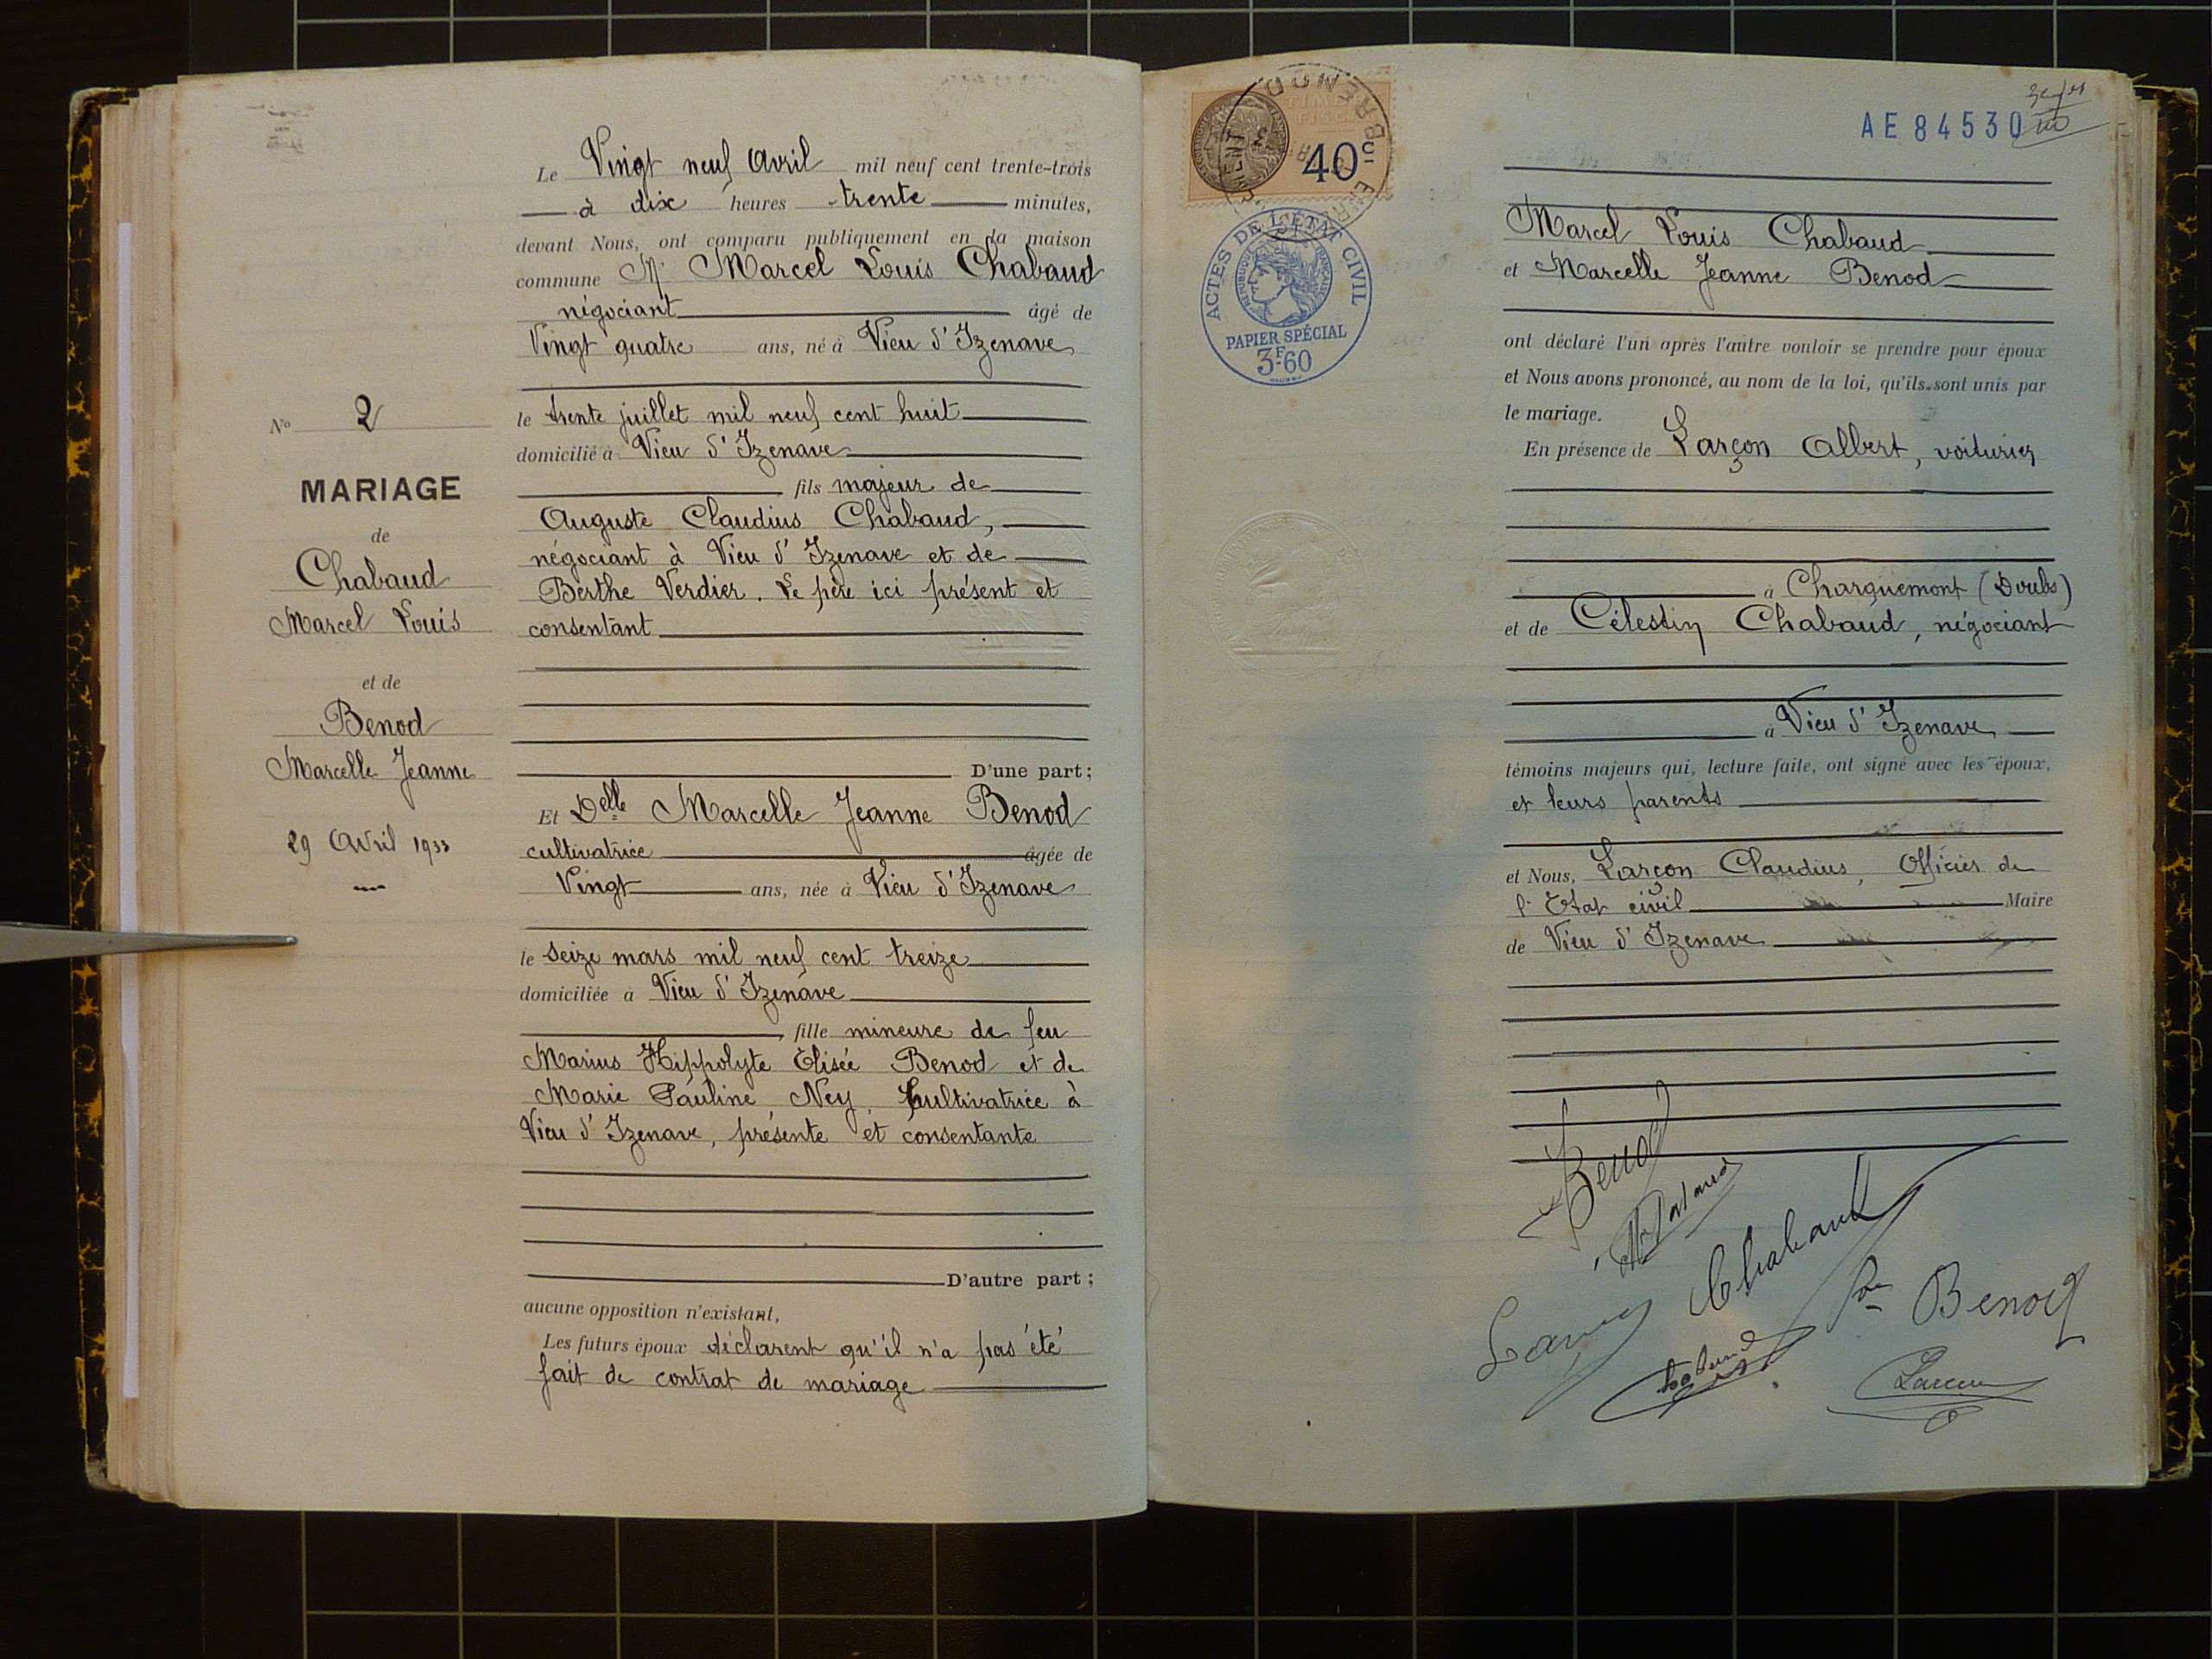 N° 2
MARIAGE
de
Chabaud
Marcel Louis
et de
Benod
Marcelle Jeanne
29 Avril 1933
Le Vingt neuf Avril mil neuf cent trente-trois
à dix heures trente minutes,
devant Nous, ont comparu publiquement en la maison
commune Mr Marcel Louis Chabaud
négociant âgé de
Vingt quatre ans, né à Vieu d'Izenave
le trente juillet mil neuf cent huit
domicilié à Vieu d'Izenave
fils majeur de
Auguste Claudius Chabaud,
négociant à Vieu d'Izenave et de
Berthe Verdier. Le père ici présent et
consentant
D'une part;
Et Delle Marcelle Jeanne Benod
cultivatrice âgée de
Vingt ans, née à Vieu d'Izenave
le seize mars mil neuf cent treize
domiciliée à Vieu d'Izenave
fille mineure de feu
Marius Hippolyte Elisée Benod et de
Marie Pauline Ney, cultivatrice à
Vieu d'Izenave, présente et consentante
D'autre part;
aucune opposition n'existant,
Les futurs époux déclarent qu'il n'a pas été
fait de contrat de mariage
BRENOD
TIMBRE
FISCAL
40c
ACTES DE L'ÉTAT CIVIL
RÉPUBLIQUE FRANÇAISE
PAPIER SPÉCIAL
3F60
AE 84530
Marcel Louis Chabaud
et Marcelle Jeanne Benod
ont déclaré l'un après l'autre vouloir se prendre pour époux
et Nous avons prononcé, au nom de la loi, qu'ils sont unis par
le mariage.
En présence de Larçon Albert, voiturier
à Charquemont (Doubs)
et de Célestin Chabaud, négociant
à Vieu d'Izenave
témoins majeurs qui, lecture faite, ont signé avec les époux,
et leurs parents
et Nous, Larçon Claudius, Officier de
l'Etat civil Maire
de Vieu d'Izenave
Benod
Chabaud
Benod
Larçon